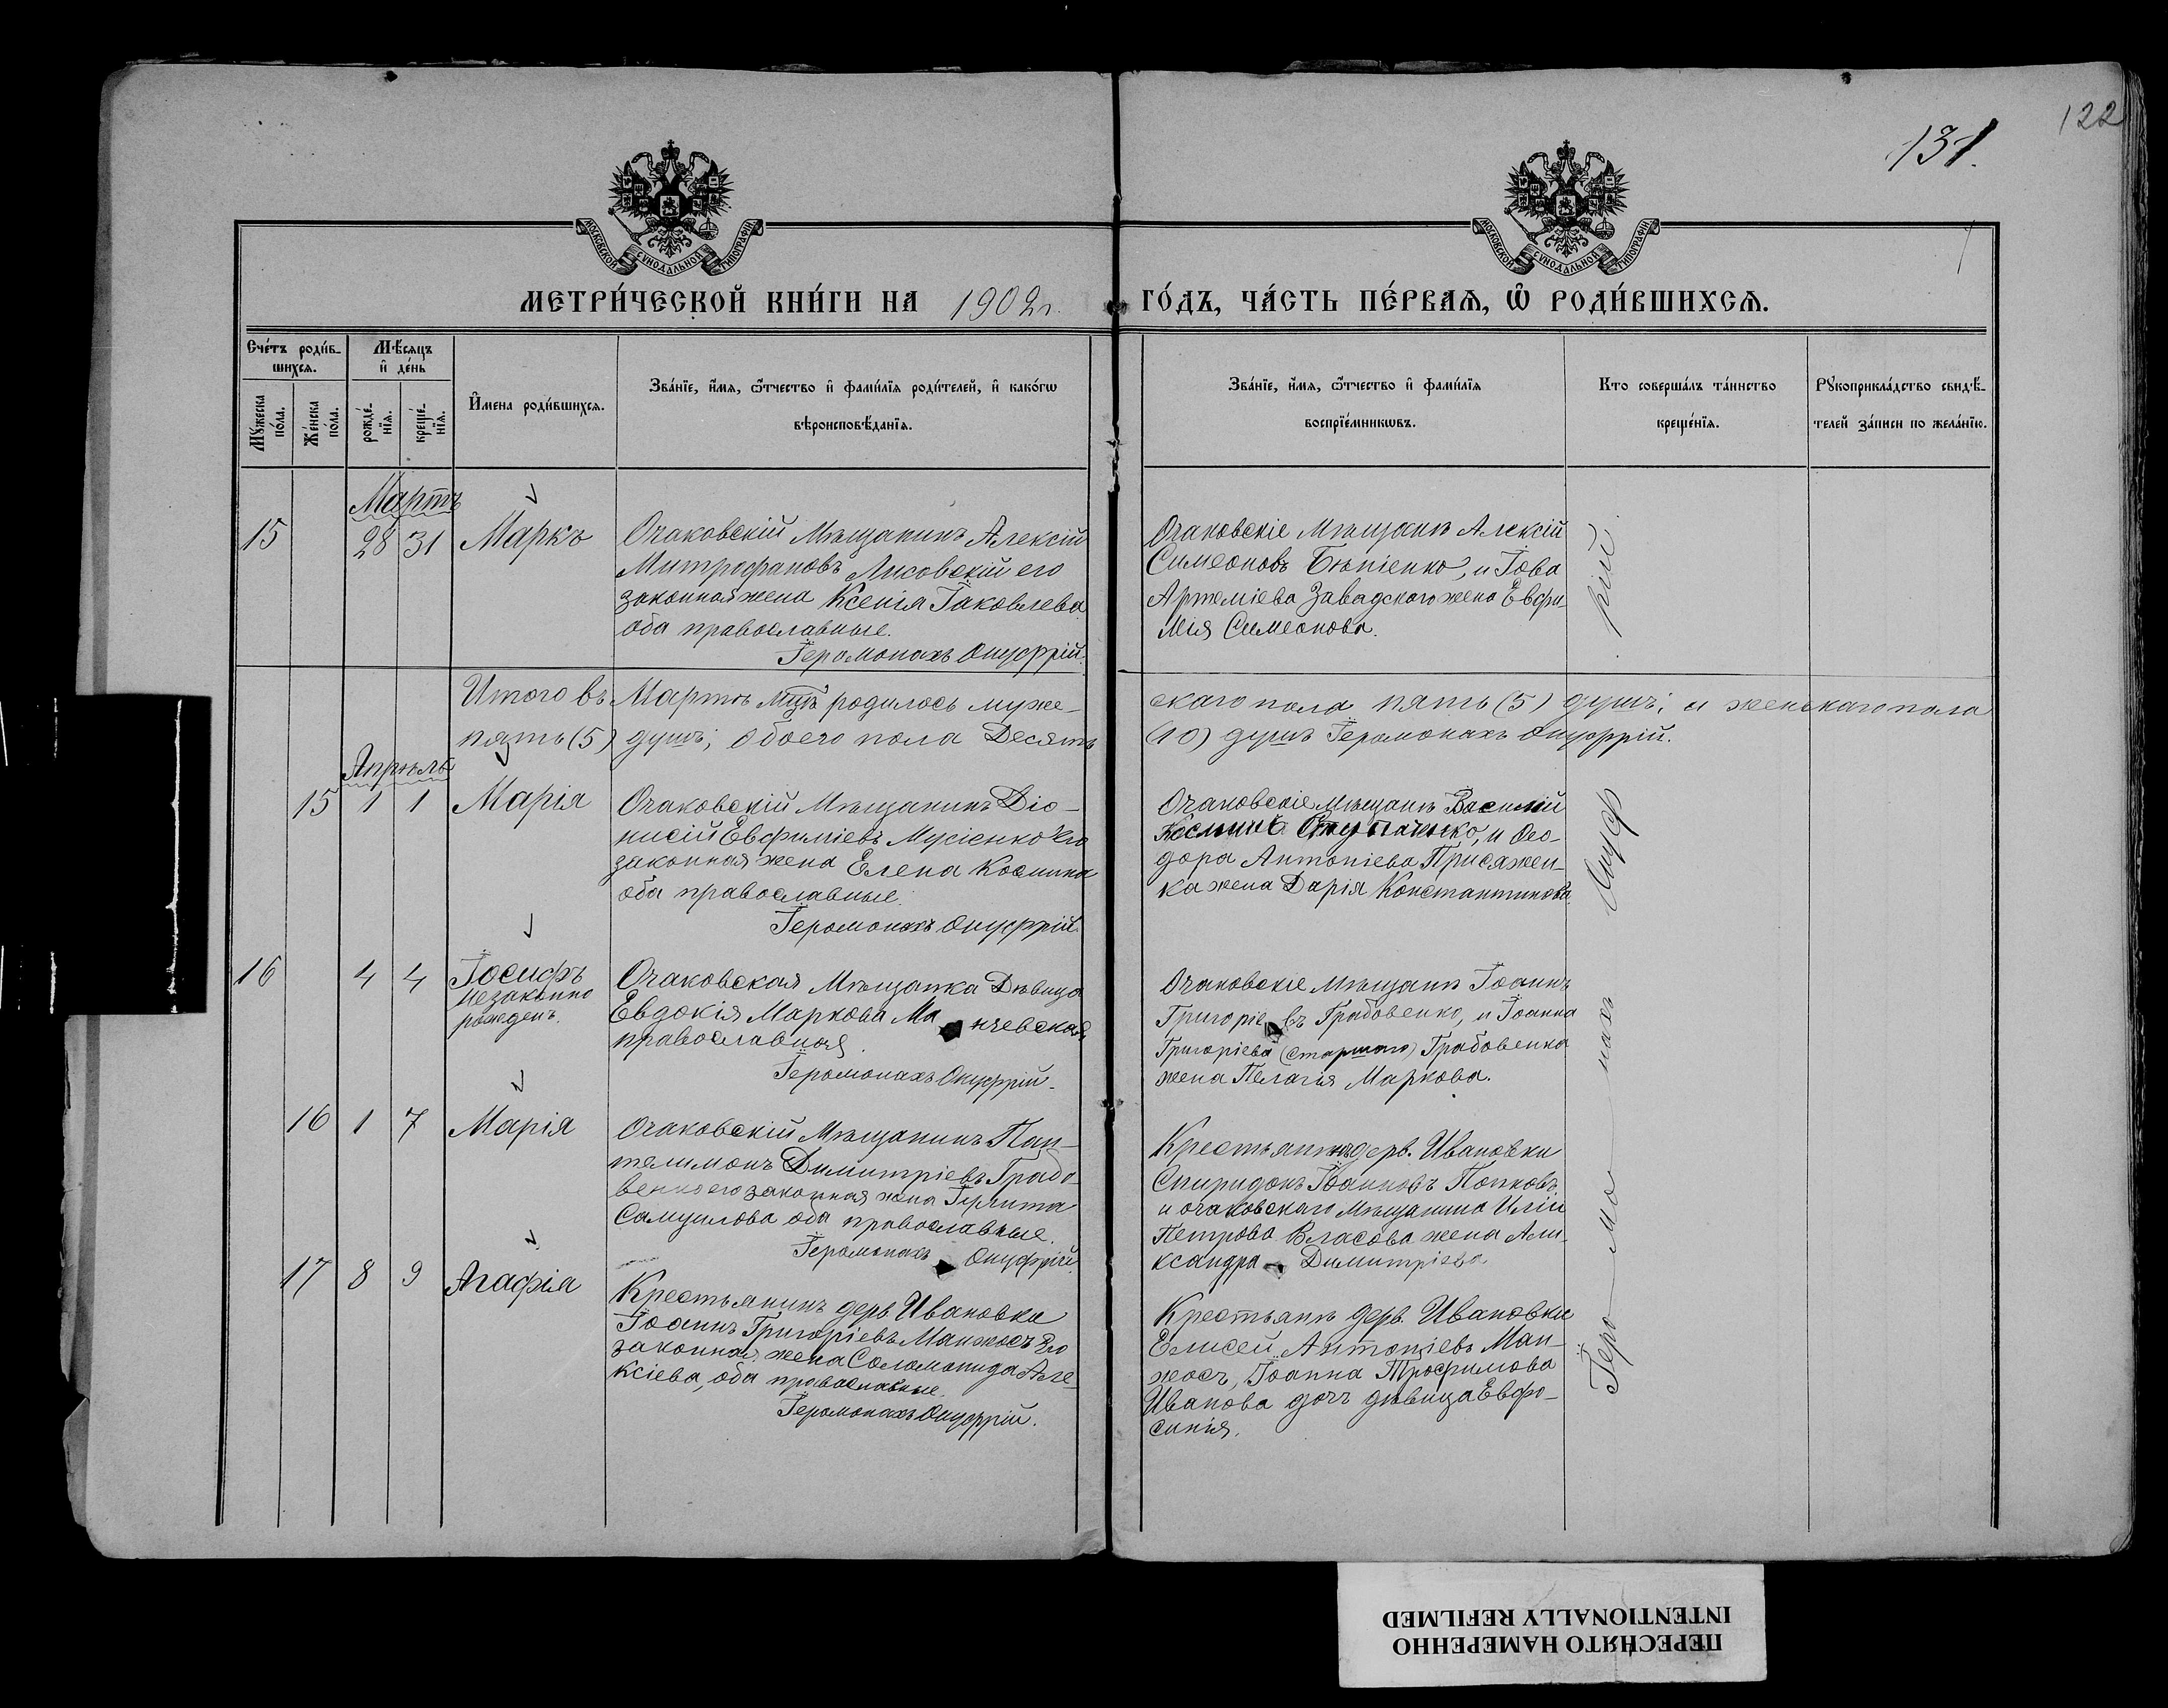 122
131.
МОСКОВСКОЙ СУНОДАЛЬНОЙ ТИПОГРАФІИ
МОСКОВСКОЙ СУНОДАЛЬНОЙ ТИПОГРАФІИ
МЕТРИ́ЧЕСКОЙ КНИ́ГИ НА 1902 г. ГО́ДЪ, ЧА́СТЬ ПЕ́РВАѦ, Ѡ҆ РОДИ́ВШИХСѦ.
Сче́тъ роди́в-
шихсѧ.
Мѣ́сѧцъ
и҆ де́нь
Мꙋжеска по́ла.
Же́нска по́ла.
рожде́-
нїѧ.
креще́-
нїѧ.
И҆мена роди́вшихсѧ.
Зва́нїе, и҆́мѧ, ѻ҆́тчество и҆ фами́лїѧ роди́телей, и҆ како́гѡ
вѣроисповѣ́данїѧ.
Зва́нїе, и҆́мѧ, ѻ҆́тчество и҆ фами́лїѧ
воспрїе́мникѡвъ.
Кто соверша́лъ та́инство
креще́нїѧ.
Рꙋкоприкла́дство свидѣ́-
телей за́писи по жела́нїю.
Мартъ
15 28 31 Маркъ
Очаковскій Мѣщанинъ Алексій
Митрофановъ Лисовскій его
законная жена Ксенія Іаковлева
оба православные.
Іеромонахъ Онуфрій.
Очаковскіе Мѣщане Алексій
Симеоновъ и Іова
Артеміева Завадскаго жена Евфи
мія Симеонова.
Итого въ Мартѣ мцѣ родилось муже-
скаго пола пять (5) душъ; и женскаго пола
пять (5) душъ; обоего пола Десять
(10) душъ Іеромонахъ Онуфрій.
Апрѣль
15 1 1 Марія
Очаковскій Мѣщанинъ Діо-
нисій Евфиміевъ Мусіенко его
законная жена Елена Космина
оба православные.
Іеромонахъ Онуфрій.
Очаковскіе мѣщане Василій
Косминъ и Ѳео-
дора Антоніева Присяжен-
ка жена Дарія Константинова.
16 4 4 Іосифъ
незаконно
рожденъ.
Очаковская Мѣщанка Дѣвица
Евдокія Маркова
православная.
Іеромонахъ Онуфрій.
Очаковскіе мѣщане Іоаннъ
Григоріевъ Грабовенко, и Іоанна
Григоріева (старшаго) Грабовенка
жена Пелагія Маркова.
16 1 7 Марія
Очаковскій Мѣщанинъ Пан-
телимонъ Димитріевъ Грабо-
венко его законная жена
Самуилова оба православные.
Іеромонахъ Онуфрій.
Крестьянинъ дерв. Ивановки
Спиридонъ Іоанновъ Попковъ,
и очаковскаго Мѣщанина Иліи
Петрова Власова жена Але-
ксандра Димитріева.
17 8 9 Агафія
Крестьянинъ дерв Ивановка
Іоаннъ Григоріевъ Манжосъ Его
законная жена Соломонида Але-
ксіева, оба православные.
Іеромонахъ Онуфрій.
Крестьяне дерв. Ивановки
Елисей Антоніевъ Ман-
жосъ, Іоанна Трофимова
Иванова доч дѣвица Евфро-
синія.
Іеро-мо-нахъ Онуф-рій.
ПЕРЕСНЯТО НАМЕРЕННО
INTENTIONALLY REFILMED